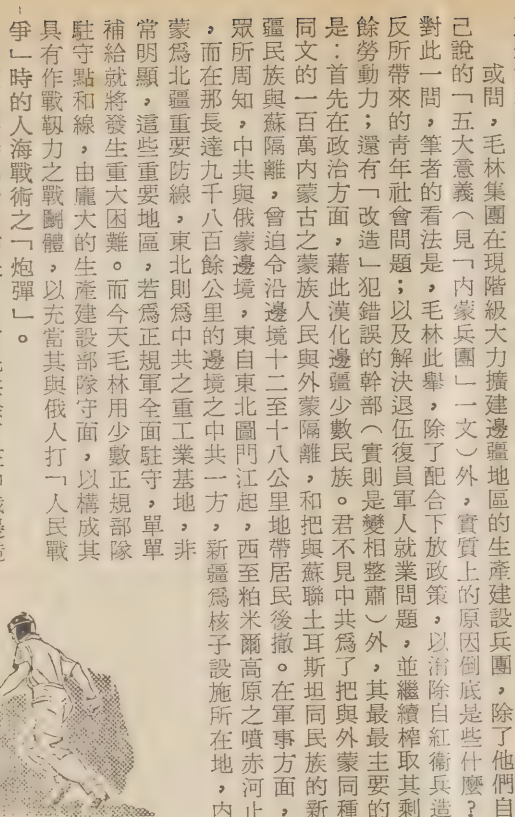 或問，毛林集團在現階級大力擴建邊疆地區的生產建設兵團，除了他們自
己說的「五大意義（見「內蒙兵團」一文）外，實質上的原因倒底是些什麼？
對此一問，筆者的看法是，毛林此舉，除了配合下放政策，以消除自紅衞兵造
反所帶來的靑年社會問題；以及解決退伍復員軍人就業問題，並繼續榨取其剩
餘勞動力；還有「改造」犯錯誤的幹部（實則是變相整肅）外，其最最主要的
是：首先在政治方面，藉此漢化邊疆少數民族。君不見中共爲了把與外蒙同種
同文的一百萬內蒙古之蒙族人民與外蒙隔離，和把與蘇聯土耳斯坦同民族的新
疆民族與蘇隔離，曾迫令沿邊境十二至十八公里地帶居民後撤。在軍事方面，
眾所周知，中共與俄蒙邊境，東自東北圖門江起，西至粕米爾高原之噴赤河止
，而在那長達九千八百餘公里的邊境之中共一方，新疆爲核子設施所在地，內
蒙爲北疆重要防線，東北則爲中共之重工業基地，非
常明顯，這些重要地區，若爲正規軍全面駐守，單單
補給就將發生重大困難。而今天毛林用少數正規部隊
駐守點和線，由龐大的生產建設部隊守面，以構成其
具有作戰韌力之戰鬭體，以充當其與俄人打「人民戰
爭」時的人海戰術之「炮彈」。